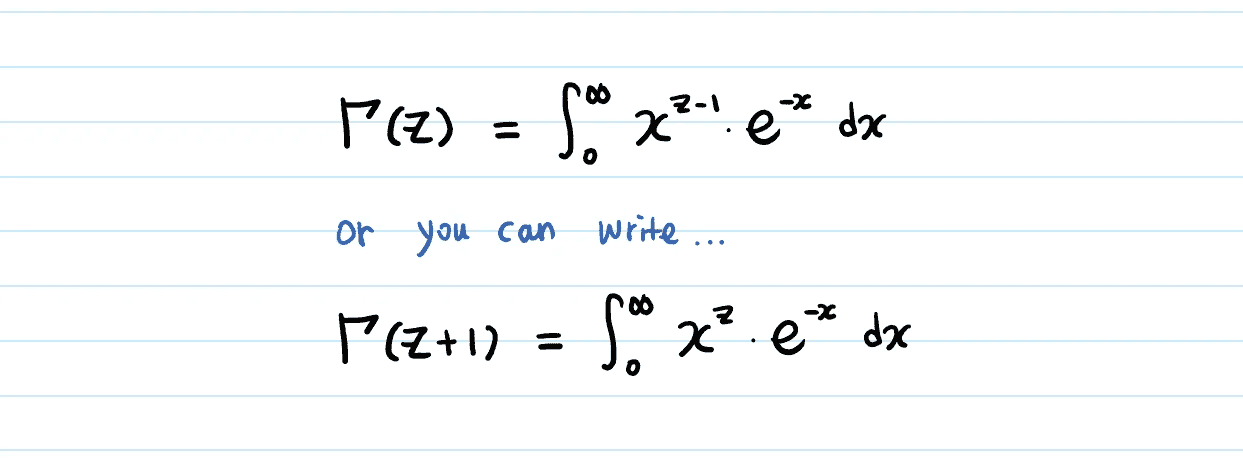 Γ(z) = ∫₀^∞ x^(z-1) · e^(-x) dx
or you can write...
Γ(z+1) = ∫₀^∞ x^z · e^(-x) dx